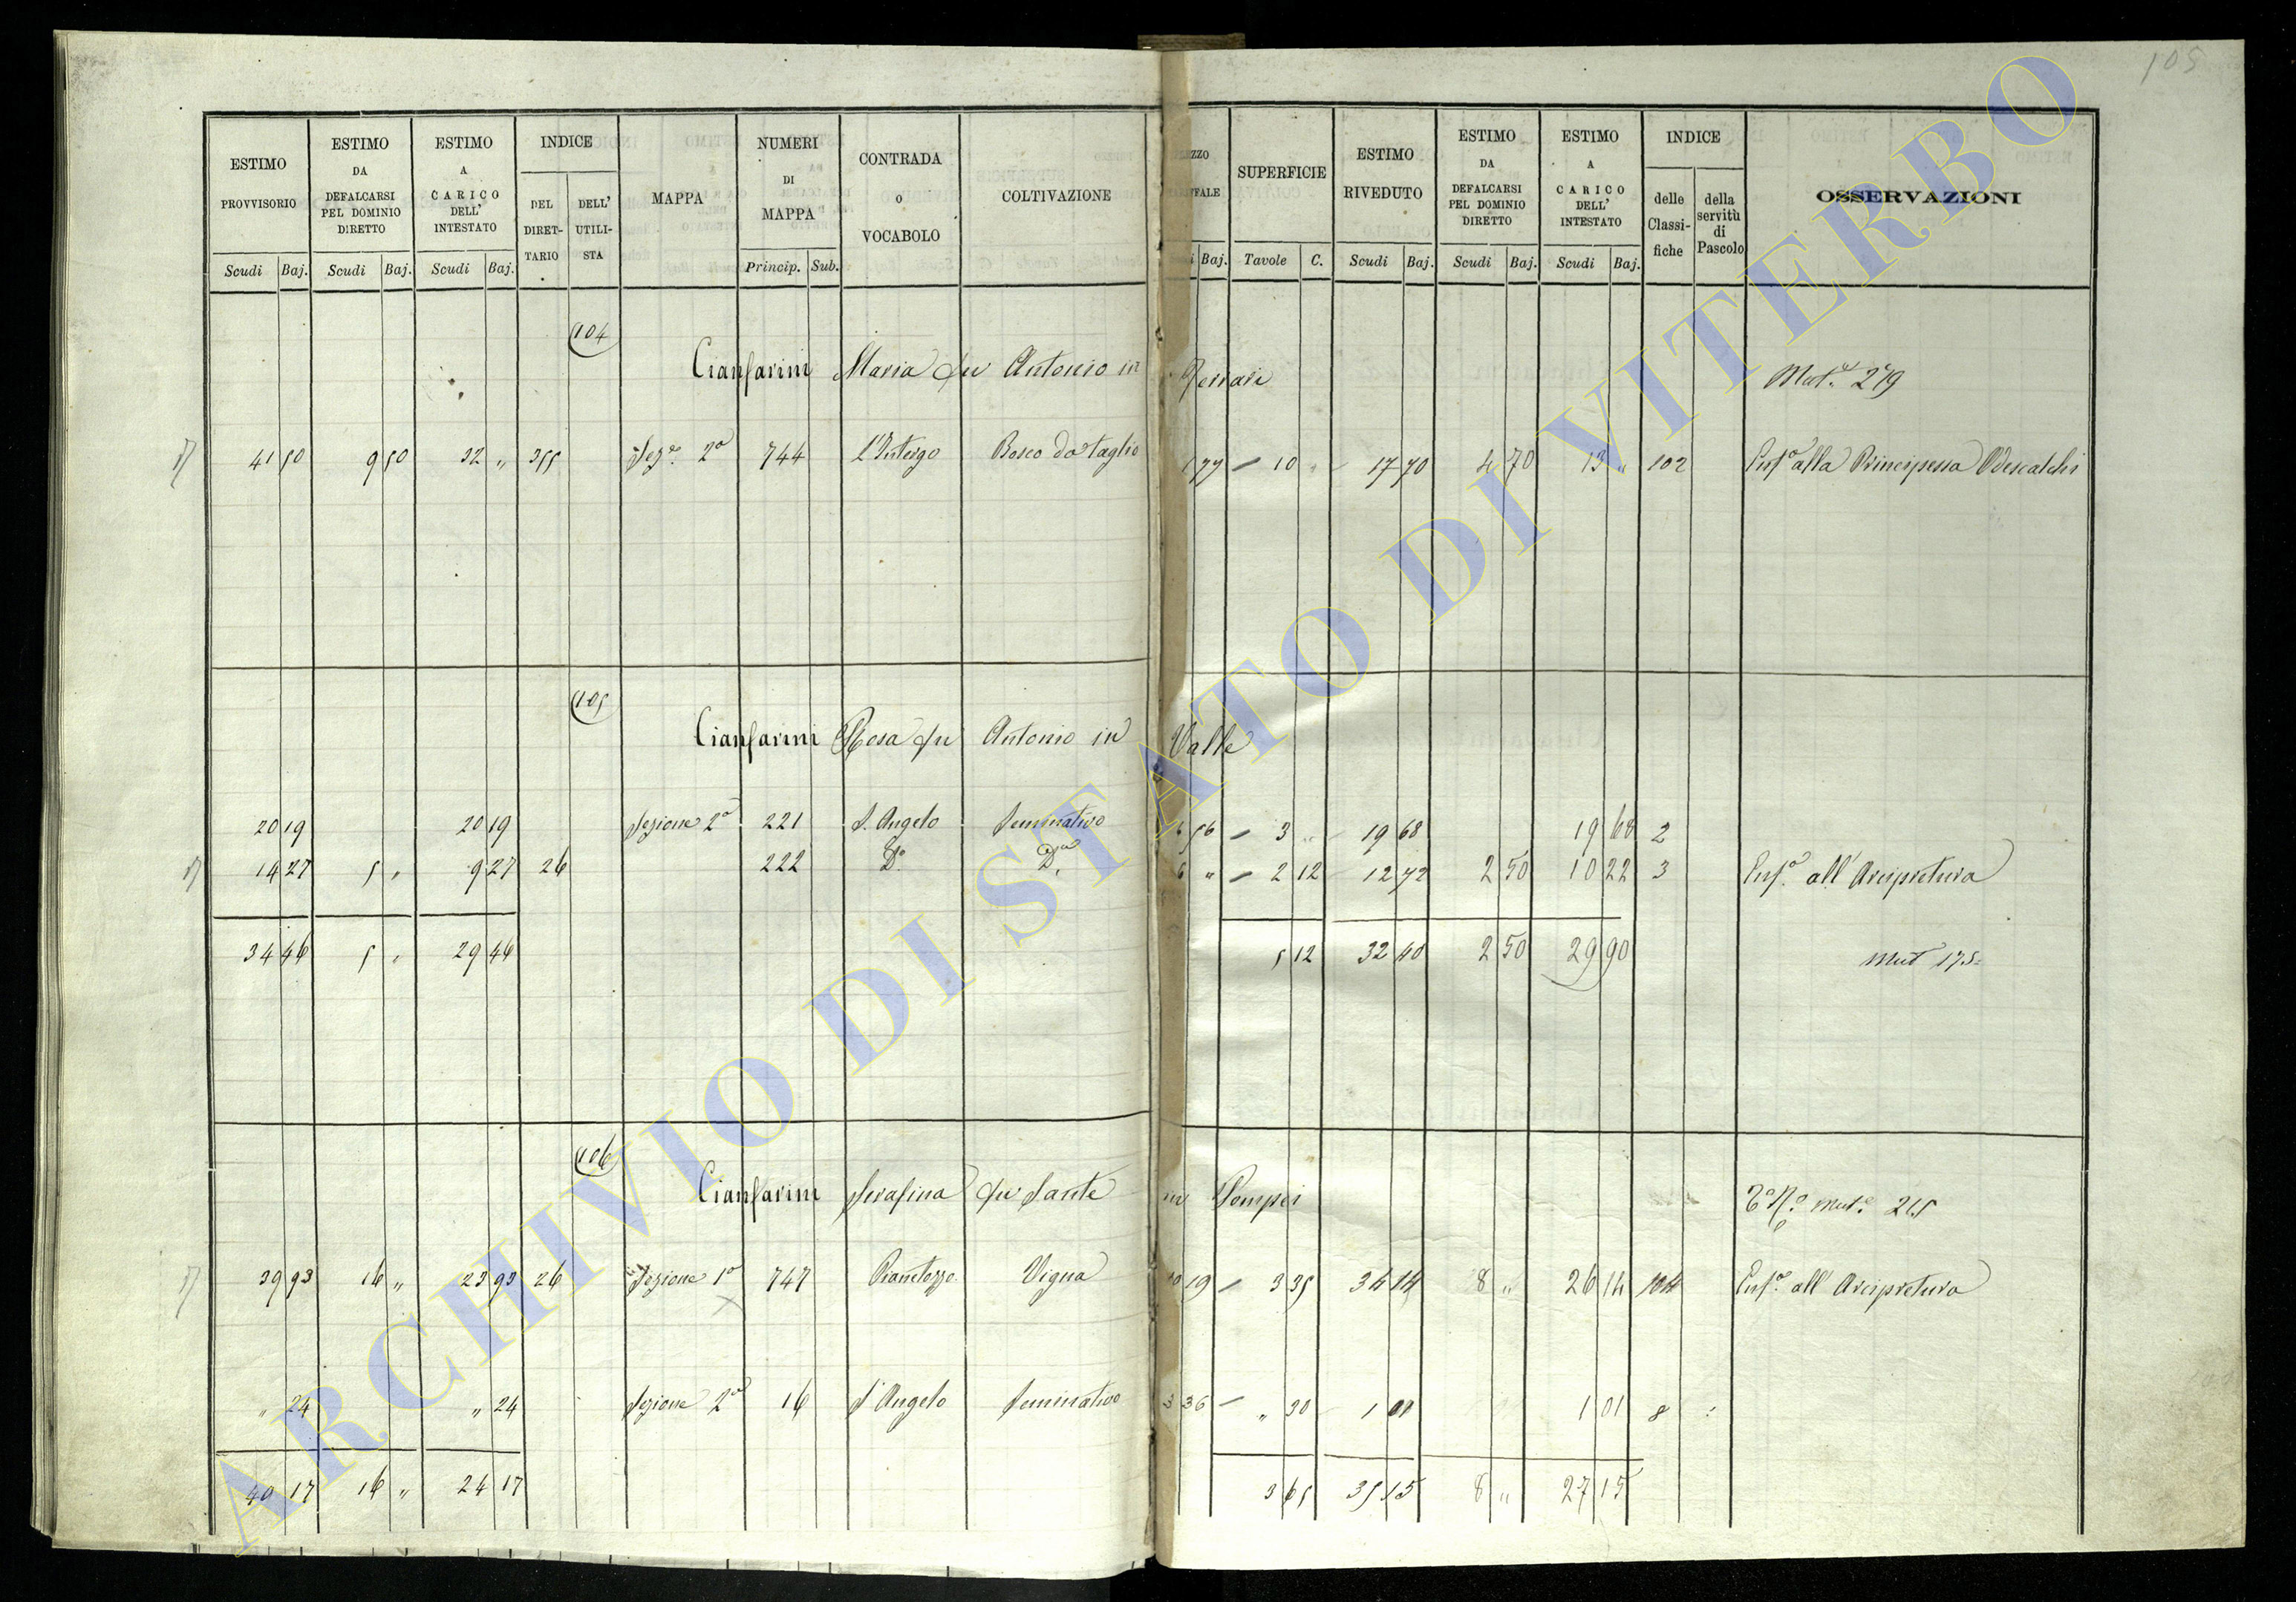 105
ESTIMO PROVVISORIO Scudi Baj.
ESTIMO DA DEFALCARSI PEL DOMINIO DIRETTO Scudi Baj.
ESTIMO A CARICO DELL' INTESTATO Scudi Baj.
INDICE DEL DIRET-TARIO DELL' UTILI-STA
MAPPA
NUMERI DI MAPPA Princip. Sub.
CONTRADA o VOCABOLO
COLTIVAZIONE
Baj.
SUPERFICIE Tavole C.
ESTIMO RIVEDUTO Scudi Baj.
ESTIMO DA DEFALCARSI PEL DOMINIO DIRETTO Scudi Baj.
ESTIMO A CARICO DELL' INTESTATO Scudi Baj.
INDICE delle Classi-fiche della servitù di Pascolo
OSSERVAZIONI
104
Cianfarini Maria fu Antonio in Ferrari Mut.e 219
41 50 9 50 32 „ 355 Sez.e 2a 744 Bosco da taglio 77 – 10 „ 17 70 4 70 13 „ 102 Enf.a alla Principessa Odescalchi
105
Cianfarini Rosa fu Antonio in Valle
20 19 20 19 Sezione 2a 221 S. Angelo Seminativo 56 – 3 „ 19 68 19 68 2
14 27 5 „ 9 27 26 222 D.o D.o „ – 2 12 12 72 2 50 10 22 3 Enf.a all' Arcipretura
34 46 5 „ 29 46 5 12 32 40 2 50 29 90 Mut 175
106
Cianfarini Serafina fu Sante in Pompei Mut.e 215
39 93 16 „ 23 93 26 Sezione 1a 747 Vigna 19 – 3 35 34 14 8 „ 26 14 104 Enf.a all' Arcipretura
„ 24 „ 24 Sezione 2a 16 S. Angelo Seminativo 3 36 – „ 30 1 01 1 01 8
40 17 16 „ 24 17 3 65 35 15 8 „ 27 15
ARCHIVIO DI STATO DI VITERBO